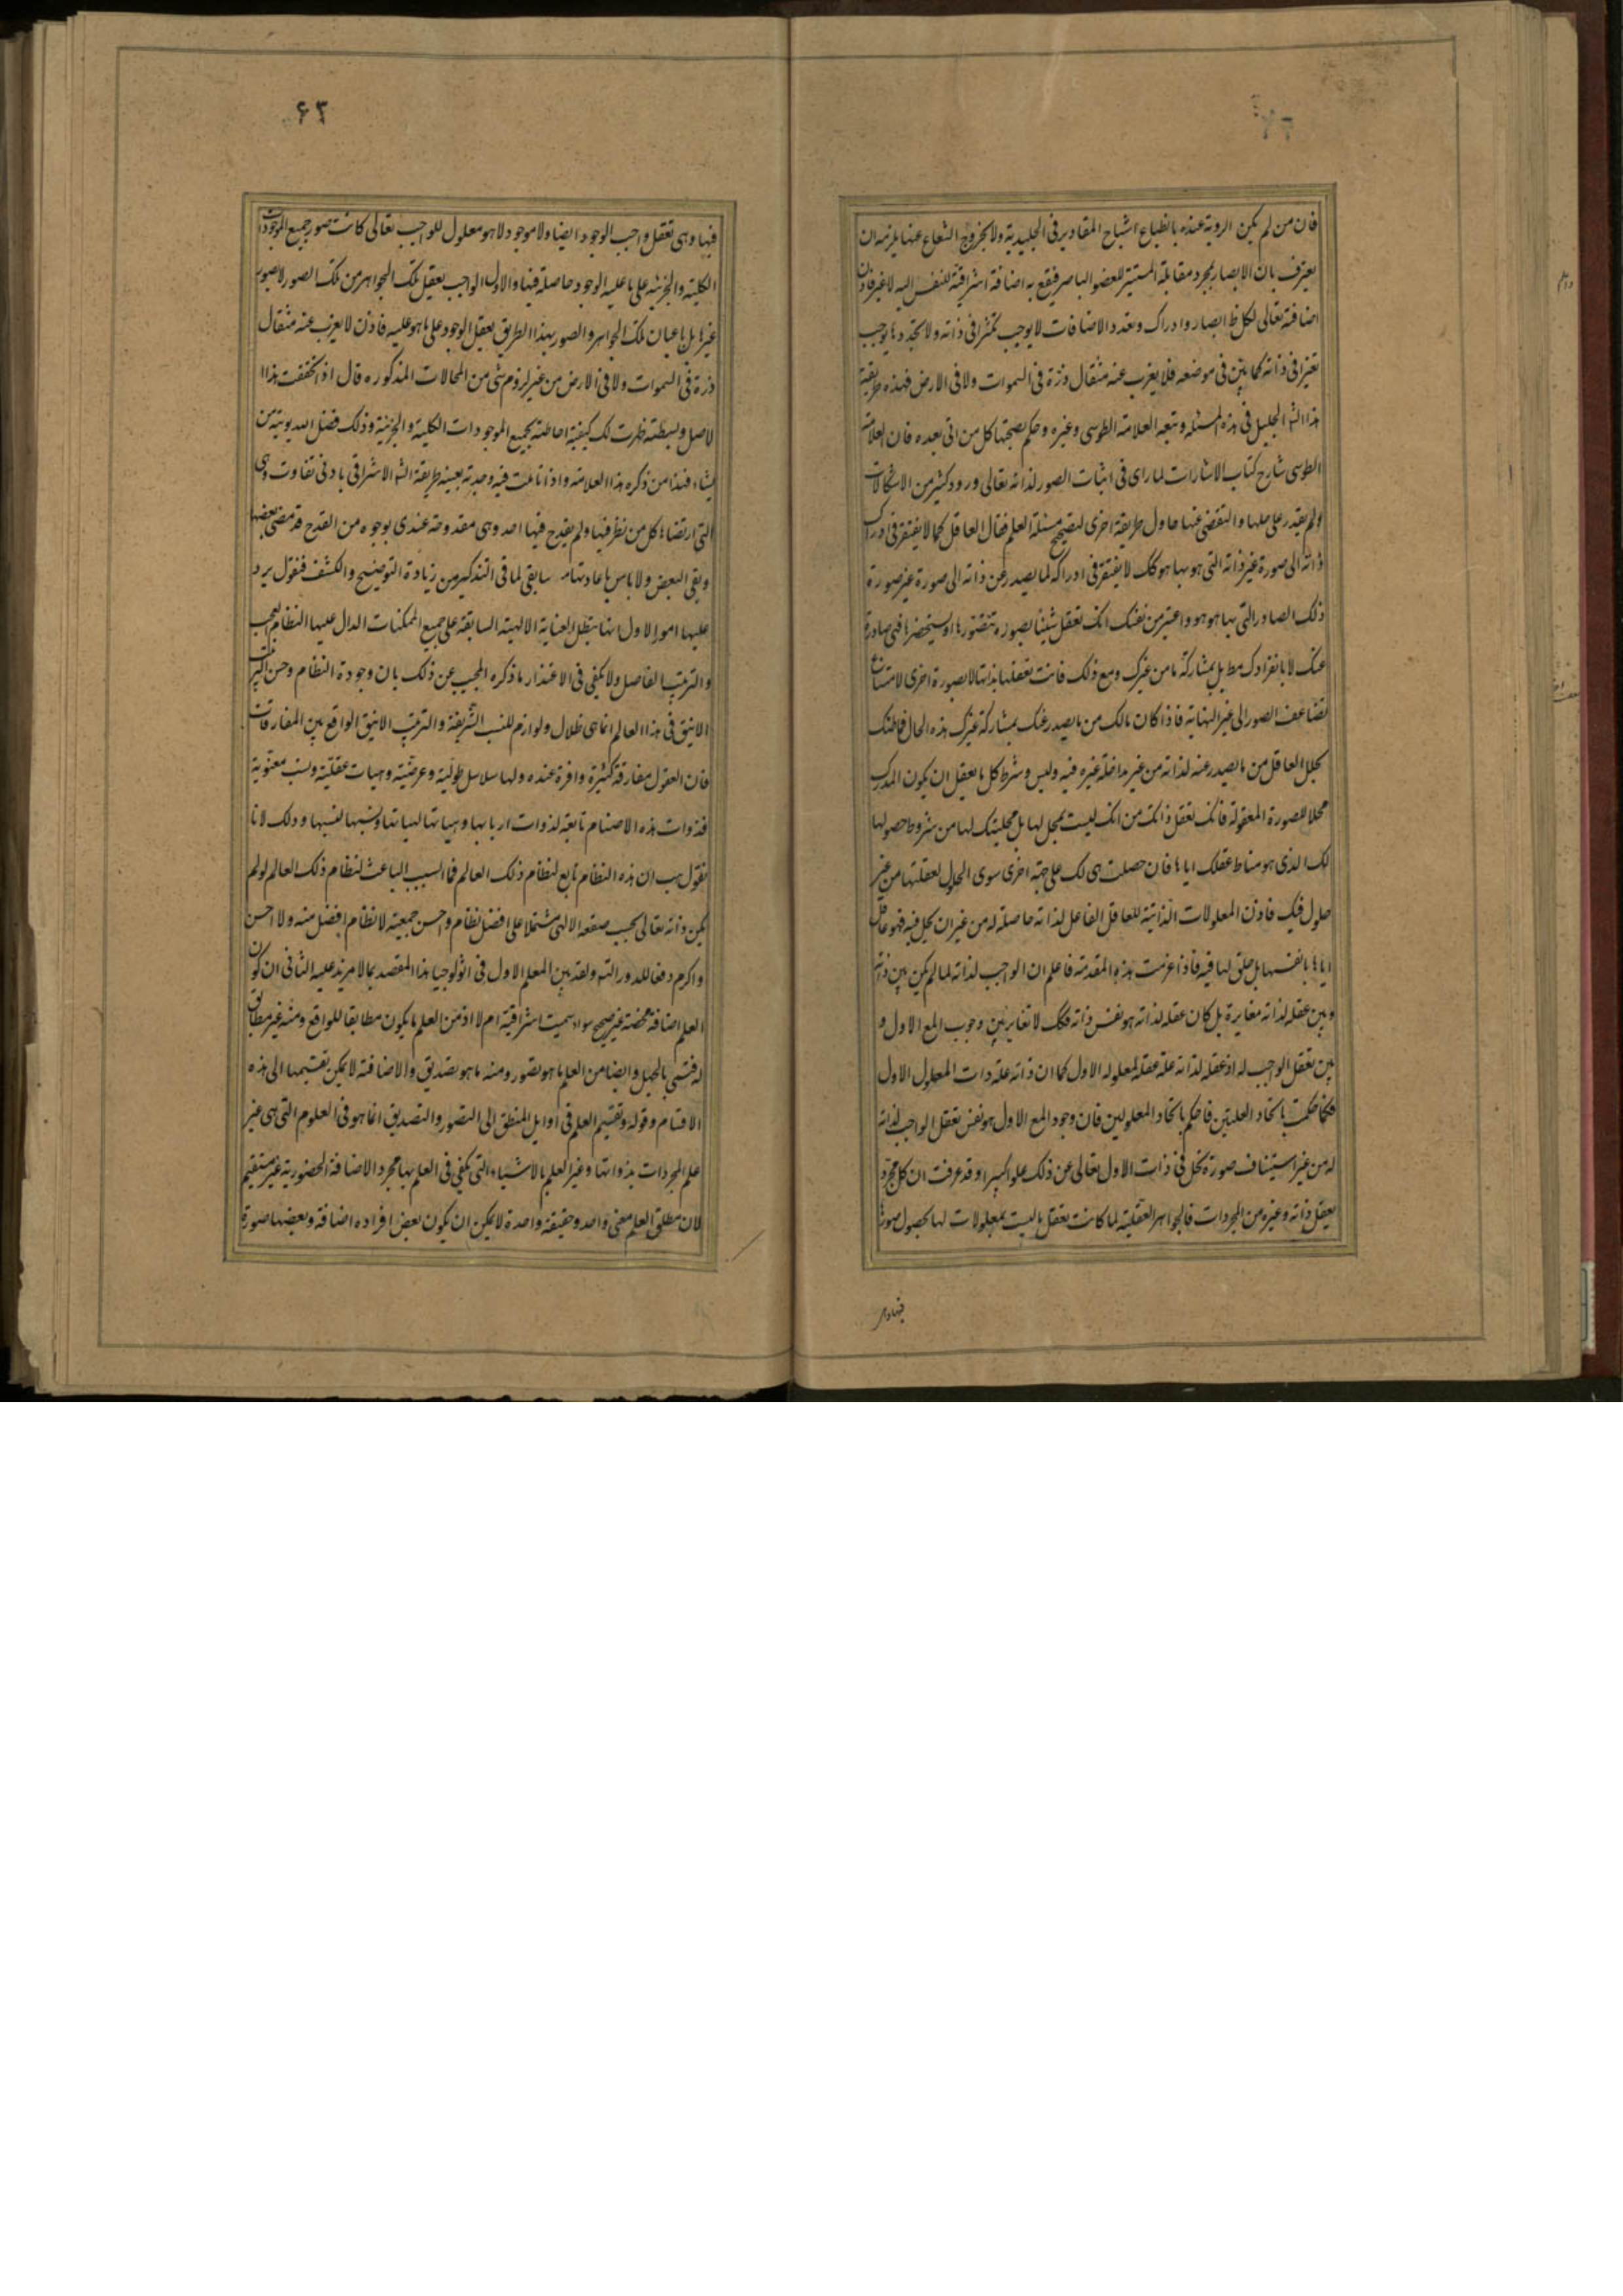 فان من لم يكن الروية عنده بانطباع اشباح المقادير فى الجليدية ولا بخروج الشعاع عنها يلزمه ان
يعترف بان الابصار بمجرد مقابلة المستنير للعضو الباصر فيقع به اضافة اشراقية للنفس اليه لا غير فاذن
اضافته تعالى لكل ظ ابصار وادراك وتعدد الاضافات لا يوجب تكثرا فى ذاته ولا تجددها يوجب
تغيرا فى ذاته كما بين فى موضعه فلا يعزب عنه مثقال ذرة فى السموات ولا فى الارض فهذه طريقة
هذا الش الجليل فى هذه المسئلة وتبعه العلامة الطوسى وغيره وحكم بصحتها كل من اتى بعده فان العلامة
الطوسى شارح كتاب الاشارات لما راى فى اثبات الصور لذاته تعالى ورود كثير من الاشكالات
ولم يقدر على حلها والتفصى عنها حاول طريقة اخرى لتصحيح مسئلة العلم فقال العاقل كما لا يفتقر فى ادراك
ذاته الى صورة غير ذاته التى هو بها هو كك لا يفتقر فى ادراكه لما يصدر عن ذاته الى صورة غير صورة
ذلك الصادر التى بها هو هو واعتبر من نفسك انك تعقل شيئا بصورة تتصورها او يستحضرها فهى صادرة
عنك لا بانفرادك مط بل بمشاركة ما من غيرك ومع ذلك فانت تعقلها بذاتها لا بصورة اخرى لامتناع
تضاعف الصور الى غير النهاية فاذا كان حالك من ما يصدر عنك بمشاركة غيرك هذه الحال فما ظنك
بحال العاقل من ما يصدر عنه لذاته من غير مداخلة غيره فيه وليس شرط كل ما يعقل ان يكون المدرك
محلا للصورة المعقولة فانك تعقل ذاتك من انك ليست بمحل لها بل محليتك لها من شروط حصولها
لك الذى هو مناط عقلك اياها فان حصلت هى لك على جهة اخرى سوى الحلول لعقلتها من غير
حلول فيك فاذن المعلولات الذاتية للعاقل الفاعل لذاته حاصلة له من غير ان يحل فيه فهو عاقل
اياها بانفسها بل حلق لها فيه فاذا عرفت هذه المقدمة فاعلم ان الواجب لذاته لما لم يكن بين ذاته
وبين عقله لذاته مغايرة بل كان عقله لذاته هو نفس ذاته فكك لا تغاير بين وجوب المع الاول و
بين تعقل الواجب له اذ عقله لذاته علة عقله لمعلوله الاول كما ان ذاته علة ذات المعلول الاول
فكما حكمت باتحاد العلتين فاحكم باتحاد المعلولين فان وجود المع الاول هو نفس تعقل الواجب لذاته
له من غير استيناف صورة تحل فى ذات الاول تعالى عن ذلك علوا كبيرا وقد عرفت ان كل مجرد
يعقل ذاته وغيره من المجردات فالجواهر العقلية لما كانت تعقل ما ليست بمعلولات لها بحصول صورها
فيها وهى
٦٣
فيها وهى تعقل واجب الوجود ايضا ولا موجود الا هو معلول للواجب تعالى كانت صور جميع الموجودات
الكلية والجزئية على ما عليه الوجود حاصلة فيها والاول الواجب يعقل تلك الجواهر من تلك الصور لا بصور
غيرها بل باعيان تلك الجواهر والصور بهذا الطريق يعقل الوجود على ما هو عليه فاذن لا يعزب عنه مثقال
ذرة فى السموات ولا فى الارض من غير لزوم شى من المحالات المذكوره قال اذ تحققت هذا
الاصل وبسطته ظهرت لك كيفية احاطته بجميع الموجودات الكلية والجزئية وذلك فضل الله يوتيه من
يشاء فهذا من ذكره هذا العلامة واذا تاملت فيه وجدته بعينه طريقة الش الاشراقى بادنى تفاوت وهى
التى ارتضاها كل من نظر فيها ولم يقدح فيها احد وهى مقدوحة عندى بوجوه من القدح قد مضى بعضها
وبقى البعض ولا باس باعادة ما سابقى لما فى التذكير من زيادة التوضيح والكشف فنقول يرد
عليها امور الاول انها يبطل العناية الالهية السابقة على جميع الممكنات الدال عليها النظام العجيب
والترتيب الفاصل ولا يكفى فى الاعتذار ما ذكره المجيب عن ذلك بان وجودة النظام وحسن الترتيب
الانيق فى هذا العالم انما هى ظلال ولوازم للنسب الشريفة والترتيب الانيق الواقع بين المفارقات
فان العقول مفارقة كثيرة وافرة عنده ولها سلاسل طولية وعرضية وهيات عقلية ونسب معنوية
فذوات هذه الاصنام تابعة لذوات اربابها وهياتها لهياتها ونسبها لنسبها وذلك لانا
نقول هب ان هذه النظام تابع لنظام ذلك العالم فما السبب الباعث لنظام ذلك العالم لو لم
يكن ذاته تعالى بحسب صقعه الالهى مشتملا على افضل نظام واحسن جمعية لا نظام افضل منه ولا احسن
واكرم دفعا للدور والتس ولقد بين المعلم الاول فى اثولوجيا هذا المقصد بما لا مزيد عليه الثانى ان كون
العلم اضافة محضة غير صحيح سواء سميت اشراقية ام لا اذ من العلم ما يكون مطابقا للواقع ومنه غير مطابق
له فتسمى بالجهل وايضا من العلم ما هو تصور ومنه ما هو تصديق والاضافة لا يمكن تقسيمها الى هذه
الاقسام وقوله وتقسيم العلم فى اوايل المنطق الى التصور والتصديق انما هو فى العلوم التى هى غير
علم المجردات بذواتها وغير العلم بالاشياء التى يكفى فى العلم بها مجرد الاضافة الحضورية غير مستقيم
لان مطلق العلم معنى واحد وحقيقة واحدة لا يمكن ان يكون بعض افراده اضافة وبعضها صورة